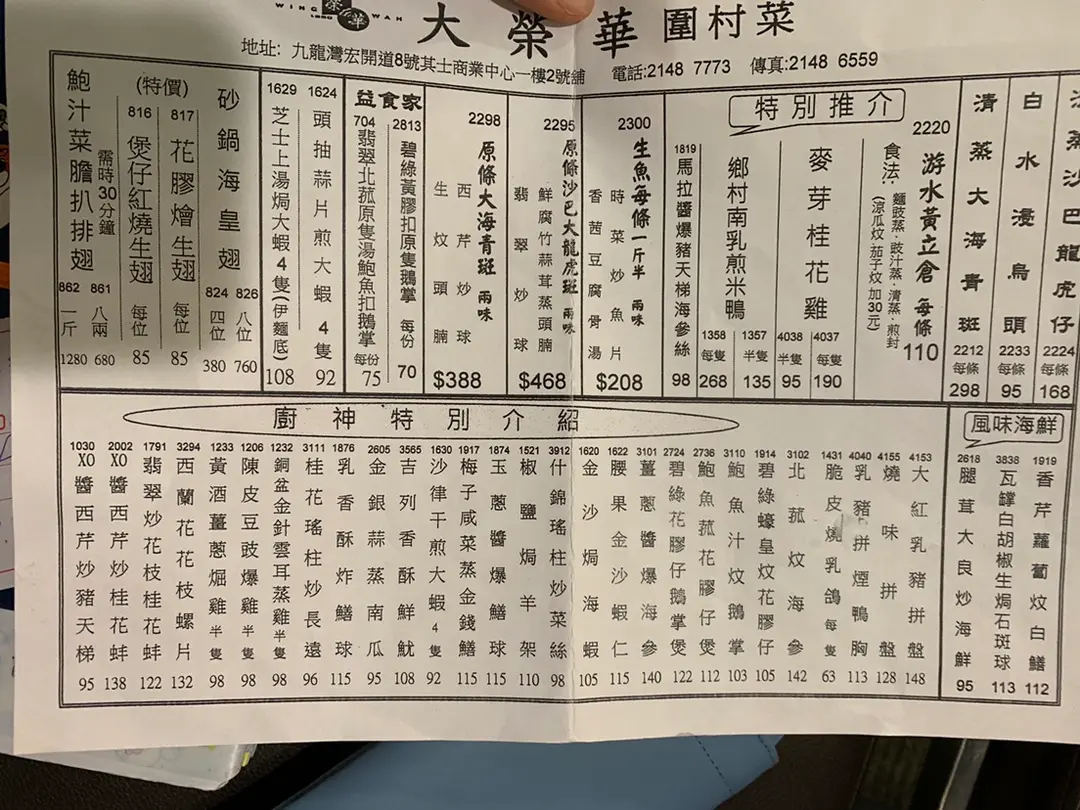 WING WAH
榮華
大榮華圍村菜
地址: 九龍灣宏開道8號其士商業中心一樓2號舖 電話:2148 7773 傳真:2148 6559
沙巴龍虎仔 2224 每條 168
白水浸烏頭 2233 每條 95
清蒸大海青斑 2212 每條 298
特別推介
2220 游水黃立倉 每條 110
食法:麵豉蒸·豉汁蒸·清蒸·煎封
(涼瓜炆 茄子炆 加30元)
麥芽桂花雞
4037 每隻 190
4038 半隻 95
鄉村南乳煎米鴨
1357 半隻 135
1358 每隻 268
1819 馬拉醬爆豬天梯海參絲 98
2300 生魚每條一斤半 兩味
時菜炒魚片
香茜豆腐骨湯
$208
2295 原條沙巴大龍虎斑 兩味
鮮腐竹蒜茸蒸頭腩
翡翠炒球
$468
2298 原條大海青斑 兩味
西芹炒球
生炆頭腩
$388
益食家
2813 碧綠黃膠扣原隻鵝掌 每份 70
704 翡翠北菰原隻湯鮑魚扣鵝掌 每份 75
1624 頭抽蒜片煎大蝦4隻 92
1629 芝士上湯焗大蝦4隻(伊麵底) 108
砂鍋海皇翅
826 八位 760
824 四位 380
(特價)
817 花膠燴生翅 每位 85
816 煲仔紅燒生翅 每位 85
需時30分鐘
鮑汁菜膽扒排翅
861 八兩 680
862 一斤 1280
風味海鮮
1919 香芹蘿蔔炆白鱔 112
3838 瓦罉白胡椒生焗石斑球 113
2618 腿茸大良炒海鮮 95
廚神特別介紹
4153 大紅乳豬拼盤 148
4155 燒味拼盤 128
4040 乳豬拼煙鴨胸 113
1431 脆皮燒乳鴿每隻 63
3102 北菰炆海參 142
1914 碧綠蠔皇炆花膠仔 105
3110 鮑魚汁炆鵝掌 103
2736 鮑魚菰花膠仔煲 112
2724 碧綠花膠仔鵝掌煲 122
3101 薑蔥醬爆海參 140
1622 腰果金沙蝦仁 115
1620 金沙焗海蝦 105
3912 什錦瑤柱炒菜絲 98
1521 椒鹽焗羊架 110
1874 玉蔥醬爆鱔球 115
1917 梅子咸菜蒸金錢鱔 115
1630 沙律干煎大蝦4隻 92
3565 吉列香酥鮮魷 108
2605 金銀蒜蒸南瓜 95
1876 乳香酥炸鱔球 115
3111 桂花瑤柱炒長遠 96
1232 銅盆金針雲耳蒸雞半隻 98
1206 陳皮豆豉爆雞半隻 98
1233 黃酒薑蔥焗雞半隻 98
3294 西蘭花花枝螺片 132
1791 翡翠炒花枝桂花蚌 122
2002 XO醬西芹炒桂花蚌 138
1030 XO醬西芹炒豬天梯 95